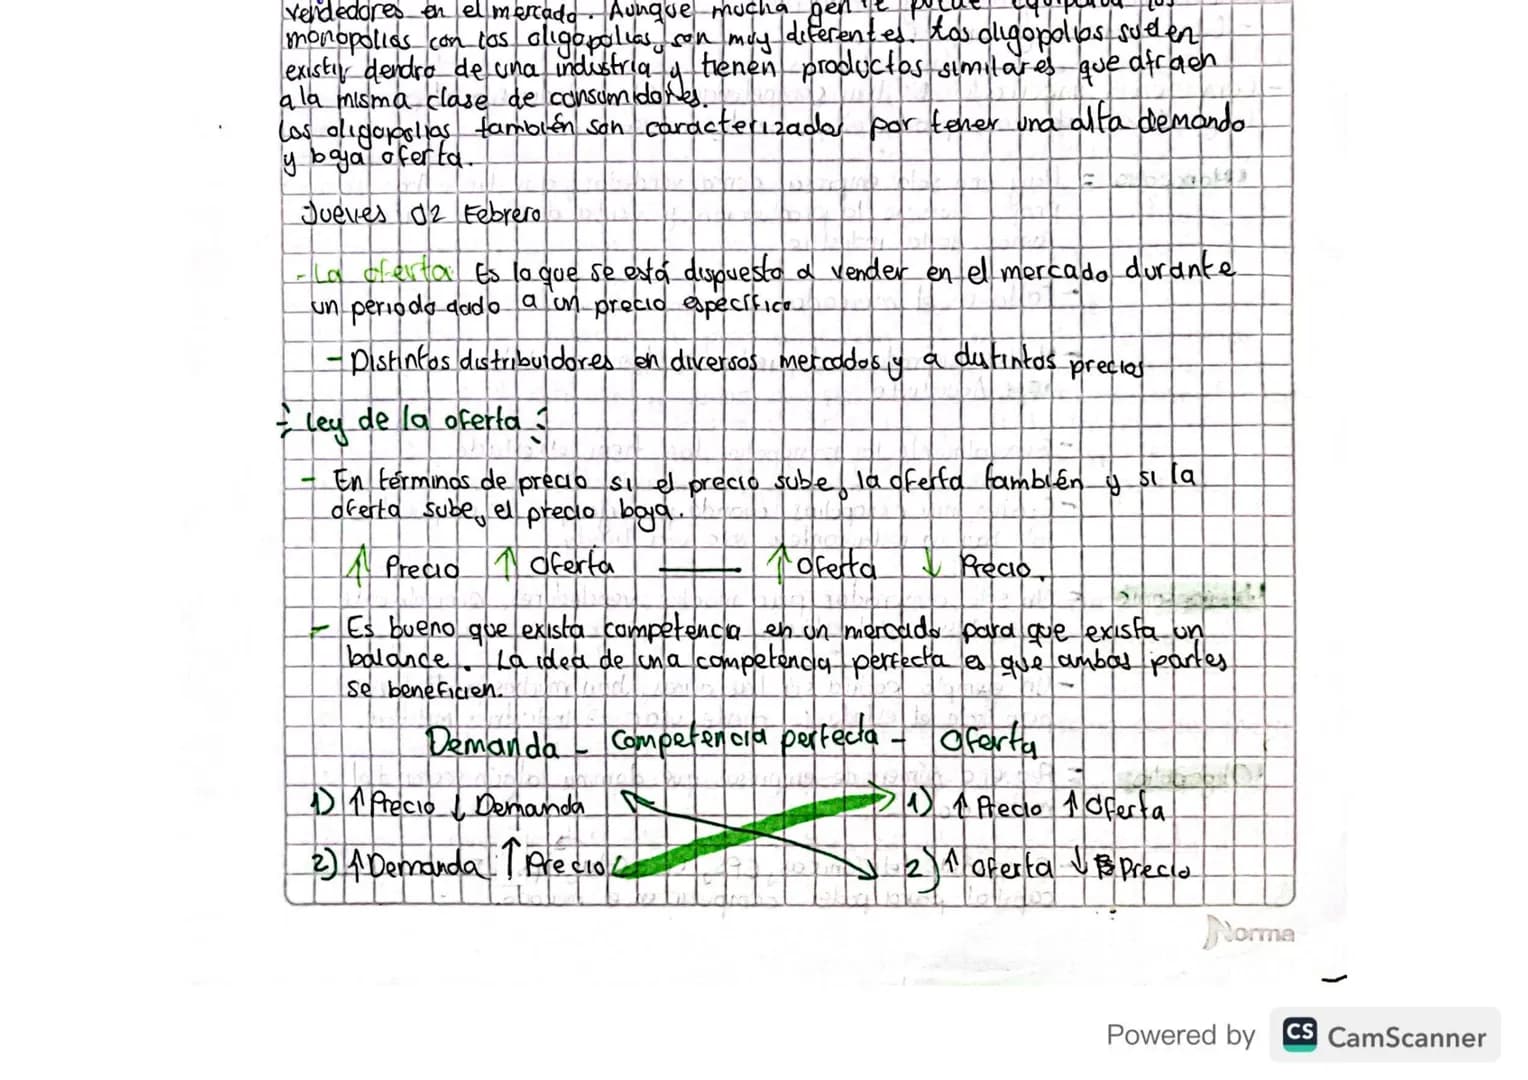 vendedores en el mercado. Aunque mucha gente
monopolios con los oligopolios, son muy diferentes. Los oligopolios suelen
existir dentro de una industria y tienen productos similares que atraen
a la misma clase de consumidores.
Los oligopolios también son caracterizados por tener una alta demanda
y baja oferta.
Jueves 02 Febrero
- La oferta: Es lo que se está dispuesto a vender en el mercado durante
un periodo dado a un precio específico
- Distintos distribuidores en diversos mercados y a distintos precios
Ley de la oferta
- En términos de precio si el precio sube, la oferta también y si la
oferta sube, el precio baja.
↑ Precio ↑ Oferta — ↑ Oferta ↓ Precio.
- Es bueno que exista competencia en un mercado para que exista un
balance. La idea de una competencia perfecta es que ambas partes
se beneficien.
Demanda - Competencia perfecta - Oferta
1) ↑ Precio ↓ Demanda 1) ↑ Precio ↑ Oferta
2) ↑ Demanda ↑ Precio 2) ↑ Oferta ↓ Precio
Norma
Powered by CS CamScanner